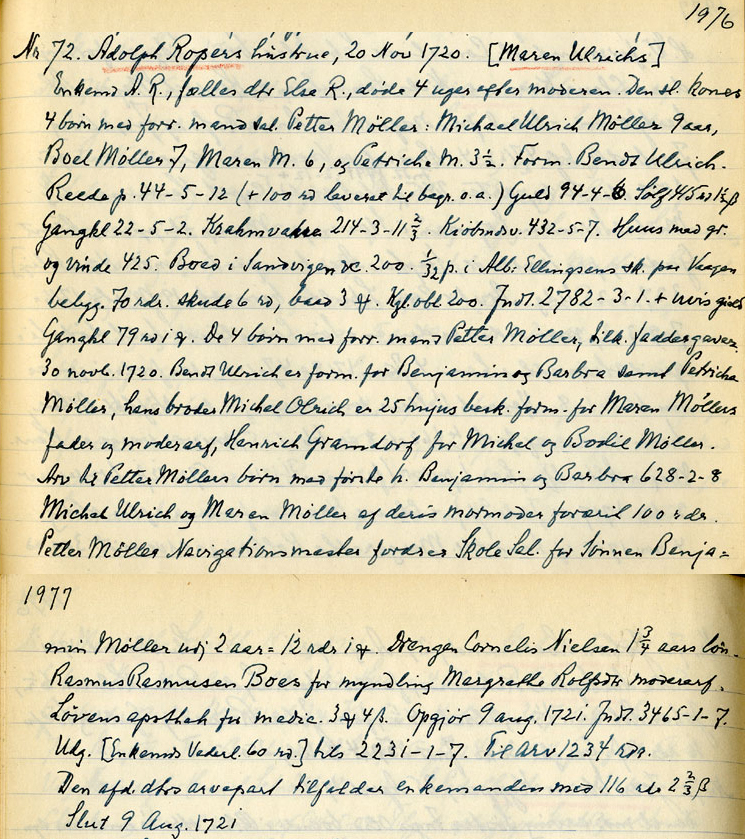 1976
Nr 72. Adolph Ropers hustrue, 20 Nov 1720. [Maren Ulrichs]
Enkemd A. R., fælles dtr Else R., døde 4 uger efter moderen. Den sl. kones
4 børn med forr. mand sal. Petter Møller: Michael Ulrich Møller 9 aar,
Boel Møller 7, Maren M. 6, og Petriche M. 3½. Form. Bendt Ulrich.
Reede p. 44-5-12 (+100 rd leveret til begr. o.a.) Guld 94-4-6. Sølf 415 rd 1½ β
Gangkl 22-5-2. Krahmvahre 214-3-11 2/3. Kiøbmdsv. 432-5-7. Huus med gr.
og vinde 425. Boed i Sandvigen etc. 200. 1/32 p. i Alb: Ellingsens sk. paa Vaagen
belyg. 70 rdr. skude 6 rd, baad 3 ȼ. Kgl. obl. 200. Indt. 2782-3-1. + uvis gield
Gangkl 79 rd 1 ȼ. De 4 børn med forr. mand Petter Møller, tilk. faddergaver.
30 novb. 1720. Bendt Ulrich er form. for Benjamin og Barbra samt Petricha
Møller, hans broder Michel Olrich er 25 hujus besk. form. for Maren Møllers
fader og moderarf, Henrich Gramdorf for Michel og Bodil Møller.
Arv til Petter Møllers børn med første h. Benjamin og Barbra 628-2-8
Michel Ulrich og Maren Møller af deris mormoder foræril 100 rdr.
Petter Møller Navigationsmester fordrer Skole Sal. for Sønnen Benja=
1977
min Møller udj 2 aar = 12 rdr 1 ȼ. Drengen Cornelis Nielsen 1 3/4 aars løn.
Rasmus Rasmusen Boes for myndling Margrethe Rolfsdtr moderarf.
Løvens apothek for medic. 3 ȼ 4 β. Opgjør 9 aug. 1721. Indt. 3465-1-7.
Udg. [Enkemds Vederl. 60 rd.] tils 2231-1-7. Til arv 1234 rdr.
Den afd. dtrs arvepart tilfalder enkemanden med 116 rdr 2 2/3 β
Slut 9 Aug. 1721